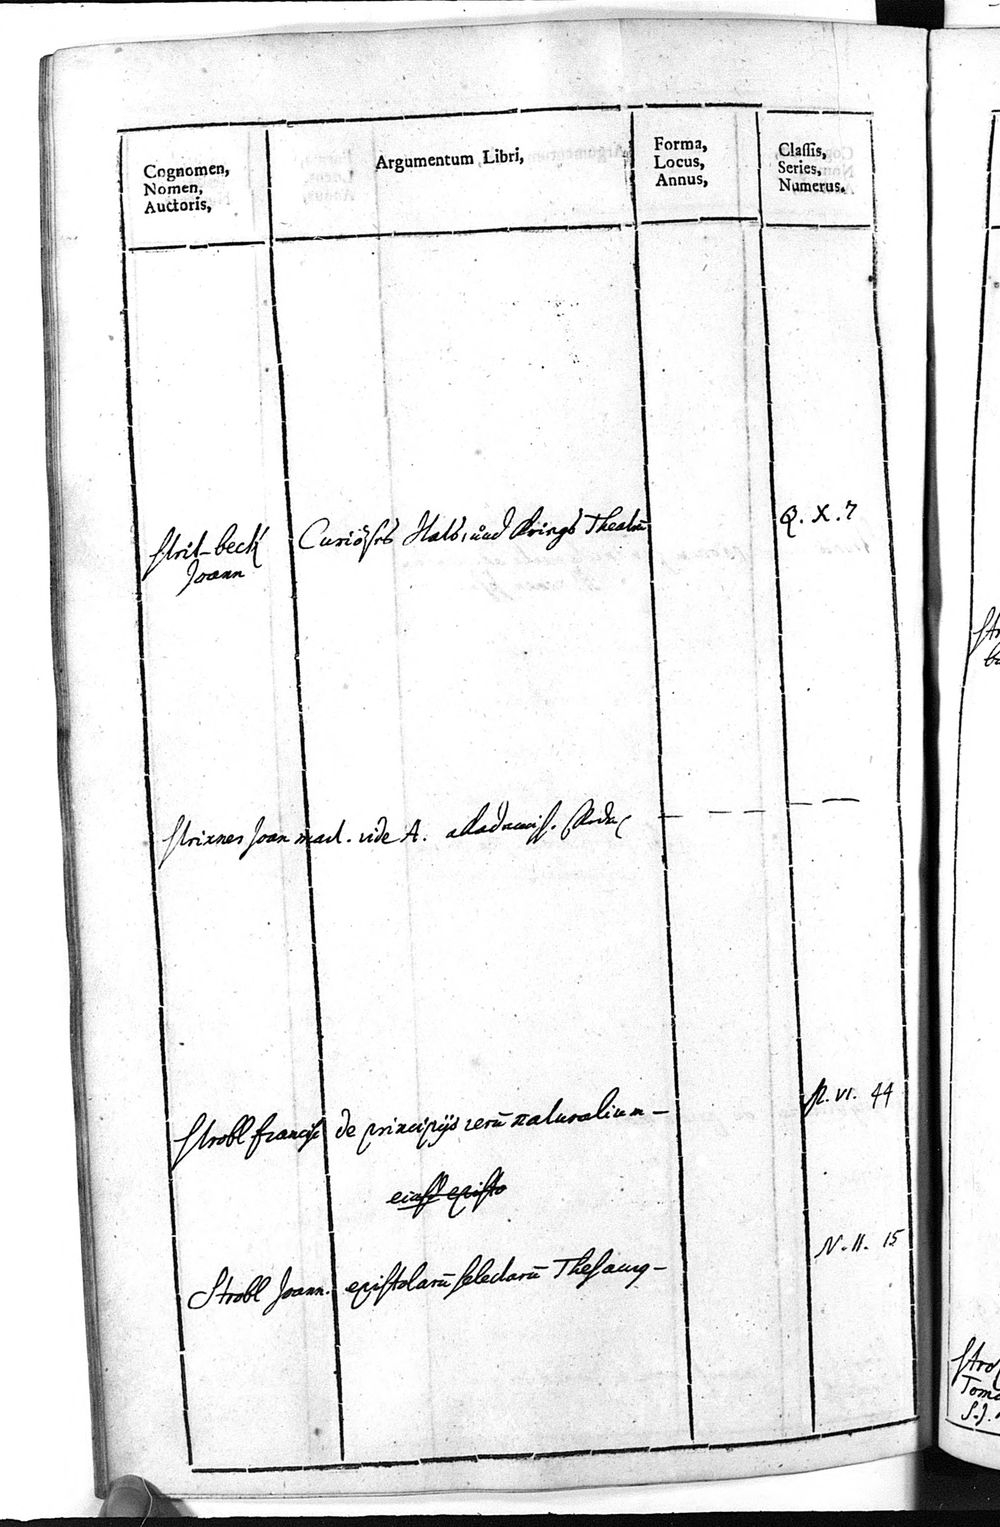 Cognomen,
Nomen,
Auctoris,
Argumentum Libri,
Forma,
Locus,
Annus,
Classis,
Series,
Numerus.
Strit-beck
Joann
Curioses Stats, und Krings Theatrū
Q. X. 7
Joan mart. vide A.
Strobl Francisc de principijs rerū naturalium –
VI. 44
eiusd episto
Strobl Joann. epistolarū selectarū Thesaurg –
N. II. 15